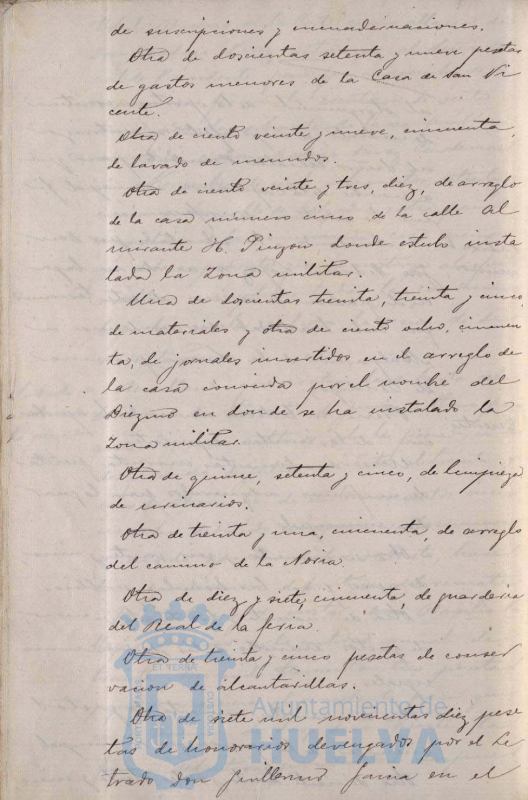 de suscripciones y encuadernaciones.
Otra de doscientas setenta y nueve pesetas
de gastos menores de la Casa de San Vi
cente.
Otra de ciento veinte y nueve, cincuenta,
de lavado de menudos.
Otra de ciento veinte y tres, diez, de arreglo
de la casa número cinco de la calle Al
mirante H. Pinzon donde estubo insta
lada la Zona militar.
Una de doscientas treinta, treinta y cinco,
de materiales y otra de ciento ocho, cincuen
ta, de jornales invertidos en el arreglo de
la casa conocida por el nombre del
Diezmo en donde se ha instalado la
Zona militar.
Otra de quince, setenta y cinco, de limpieza
de urinarios.
Otra de treinta y una, cincuenta, de arreglo
del camino de la Noria.
Otra de diez y siete, cincuenta, de guarderia
del Real de la feria.
Otra de treinta y cinco pesetas de conser
vacion de alcantarillas.
Otra de siete mil novecientas diez pese
tas de honorarios devengados por el Le
trado don Guillermo en el
Ayuntamiento de
HUELVA